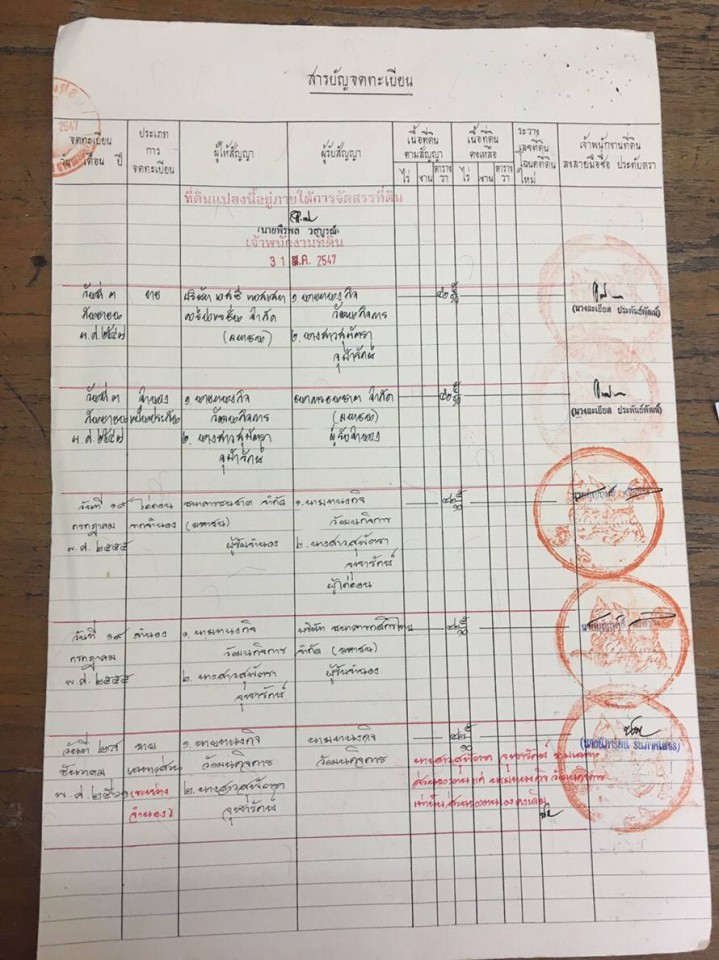 สารบัญจดทะเบียน
2547
จดทะเบียน
วัน เดือน ปี
ประเภท
การ
จดทะเบียน
ผู้ให้สัญญา
ผู้รับสัญญา
เนื้อที่ดิน
ตามสัญญา
ไร่ งาน ตาราง
วา
เนื้อที่ดิน
คงเหลือ
ไร่ งาน ตาราง
วา
ระวาง
เลขที่ดิน
โฉนดที่ดิน
ใหม่
เจ้าพนักงานที่ดิน
ลงลายมือชื่อ ประทับตรา
ที่ดินแปลงนี้อยู่ภายใต้การจัดสรรที่ดิน
เจ้าพนักงานที่ดิน
2547
วันที่ ๓
กันยายน
พ.ศ. ๒๕๔๗
ขาย
จำกัด
(มหาชน)
๑. นายทนงกิจ
วัฒนกิจการ
๒. นางสาวสุพัตรา
จุฬารัตน์
(นางละเอียด ประพันธ์พัฒน์)
วันที่ ๓
กันยายน
พ.ศ. ๒๕๔๗
จำนอง
๑. นายทนงกิจ
วัฒนกิจการ
๒. นางสาวสุพัตรา
จุฬารัตน์
ธนาคารธนชาต จำกัด
(มหาชน)
ผู้รับจำนอง
(นางละเอียด ประพันธ์พัฒน์)
วันที่ ๑๙
กรกฎาคม
พ.ศ. ๒๕๕๔
ไถ่ถอน
จากจำนอง
ธนาคารธนชาต จำกัด
(มหาชน)
ผู้รับจำนอง
๑. นายทนงกิจ
วัฒนกิจการ
๒. นางสาวสุพัตรา
จุฬารัตน์
ผู้ไถ่ถอน
วันที่ ๑๙
กรกฎาคม
พ.ศ. ๒๕๕๔
จำนอง
๑. นายทนงกิจ
วัฒนกิจการ
๒. นางสาวสุพัตรา
จุฬารัตน์
บริษัท ธนาคารกสิกรไทย
จำกัด (มหาชน)
ผู้รับจำนอง
วันที่ ๒๘
ธันวาคม
ขาย
เฉพาะส่วน
(ระหว่าง
จำนอง)
๑. นายทนงกิจ
วัฒนกิจการ
๒. นางสาวสุพัตรา
จุฬารัตน์
นายทนงกิจ
วัฒนกิจการ
นางสาวสุพัตรา จุฬารัตน์ ขายเฉพาะ
ส่วนของตนแก่ นายทนงกิจ วัฒนกิจการ
เท่านั้น ส่วนของคนอื่นคงเดิม